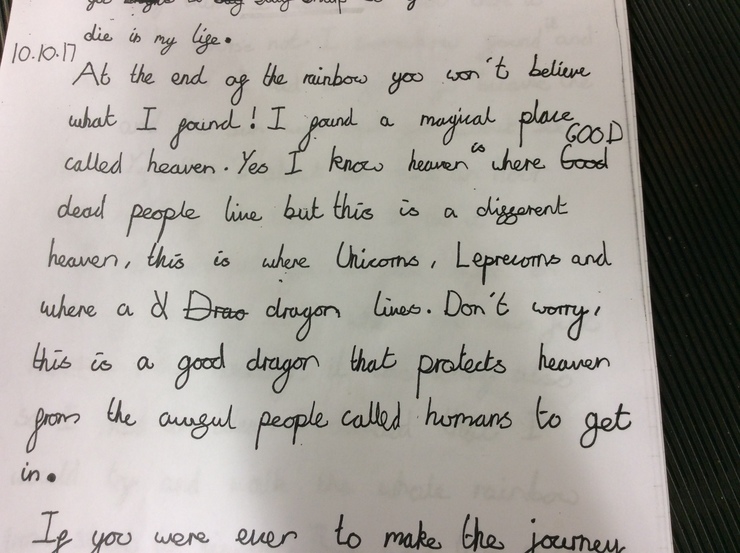 die is my life.
10.10.17
At the end of the rainbow you won't believe
what I found! I found a magical place
called heaven. Yes I know heaven is where Good GOOD
dead people live but this is a different
heaven, this is where Unicorns, Leprecorns and
where a d Drao dragon lives. Don't worry,
this is a good dragon that protects heaven
from the awful people called humans to get
in.
If you were ever to make the journey